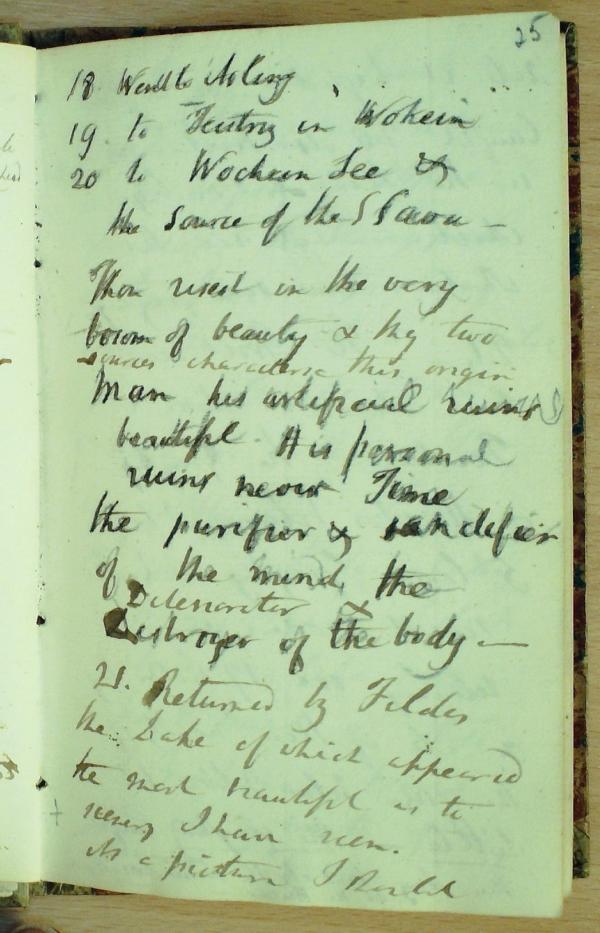 25
18 Went to Asling
19 to Feistriz in Wohein
20 to Wochein See &
the Source of the S Savou —
Thou risest in the very
bosom of beauty & thy two
sources characterise this origin
Man his artificial ruins
beautiful. His personal
ruins never Time
the purifier & sanctifier
of the mind, the
Deteriorator &
Destroyer of the body —
21. Returned by Feldes
the Lake of which appeared
the most beautiful as to
scenery I have seen.
As a picture I